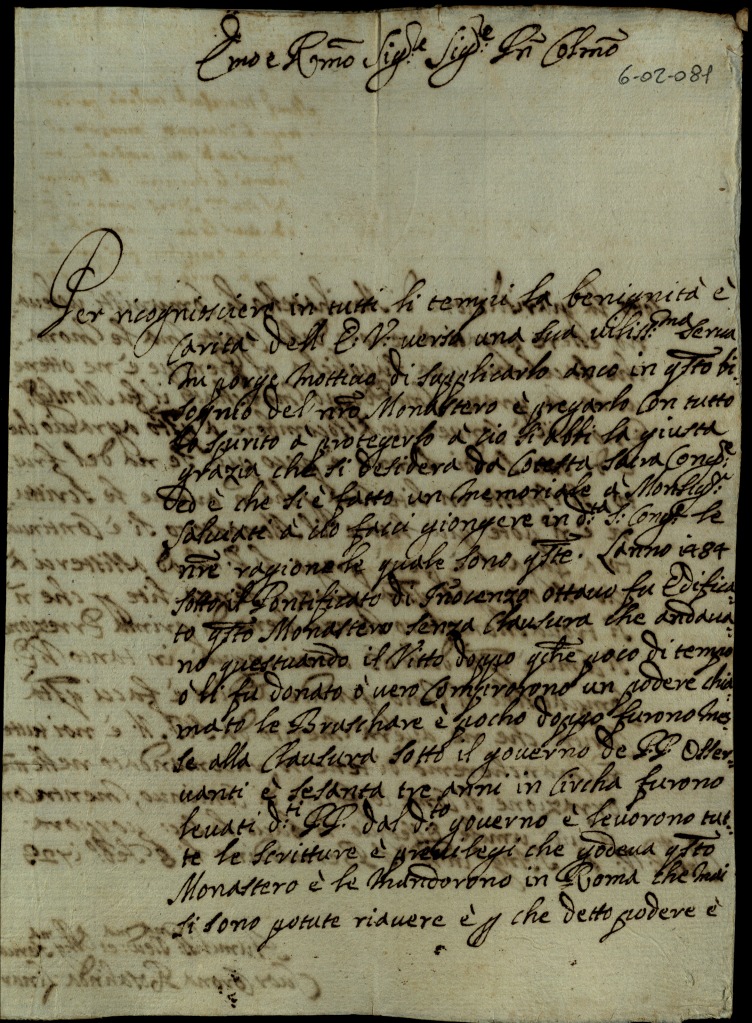 Emo e Rmo Sig.re Sig.re Pñ Colmo
6-02-081
Per ricognisciere in tutti li tempii la benignità è
Carità dell E: V: verso una sua vilis.ma Serva
mi porge mottivo di supplicarlo anco in qsto bi-
sognio del nro Monastero è pregarlo con tutto
lo spirito à protegerlo à ciò si abbi la giusta
grazia che si desidera da Cotesta Sacra Cong.e
ed è che si è fatto un memoriale à Monsig.r
Salviati à ciò facci giongere in d.ta S: Cong.e le
nre ragione le quale sono qste. Lanno 1484
sotto il Pontificato di Inocenzo ottavo fu Edifica-
to qsto Monastero senza Clausura che andava-
no questuando il Vitto doppo qche poco di tempo
ò li fu donato ò vero Comprorono un podere chia-
mato le Braschare è pocho doppo furono mes-
se alla Clausura sotto il governo de PP. Osser-
vanti è sesanta tre anni in Circha furono
levati d.ti PP. dal d.to governo è levorono tut-
te le scritture è previlegi che godeva qsto
Monastero è le mandorono in Roma che mai
si sono potute riavere è p che detto podere è